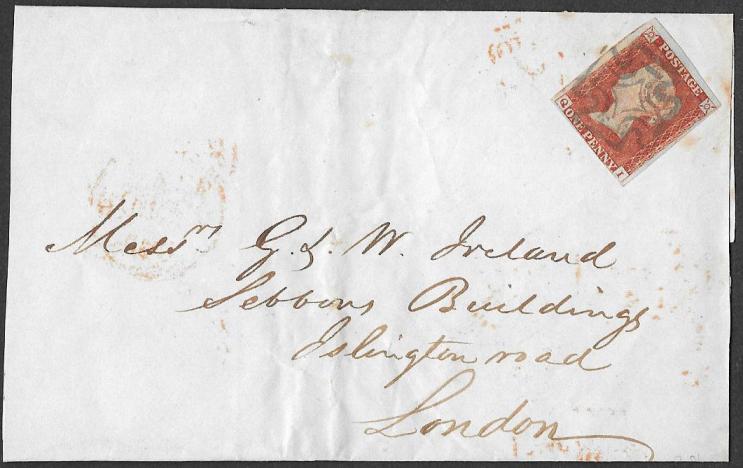 POSTAGE
Q ONE PENNY I
Messrs G. & W. Ireland
Sebbons Buildings
Islington road
London